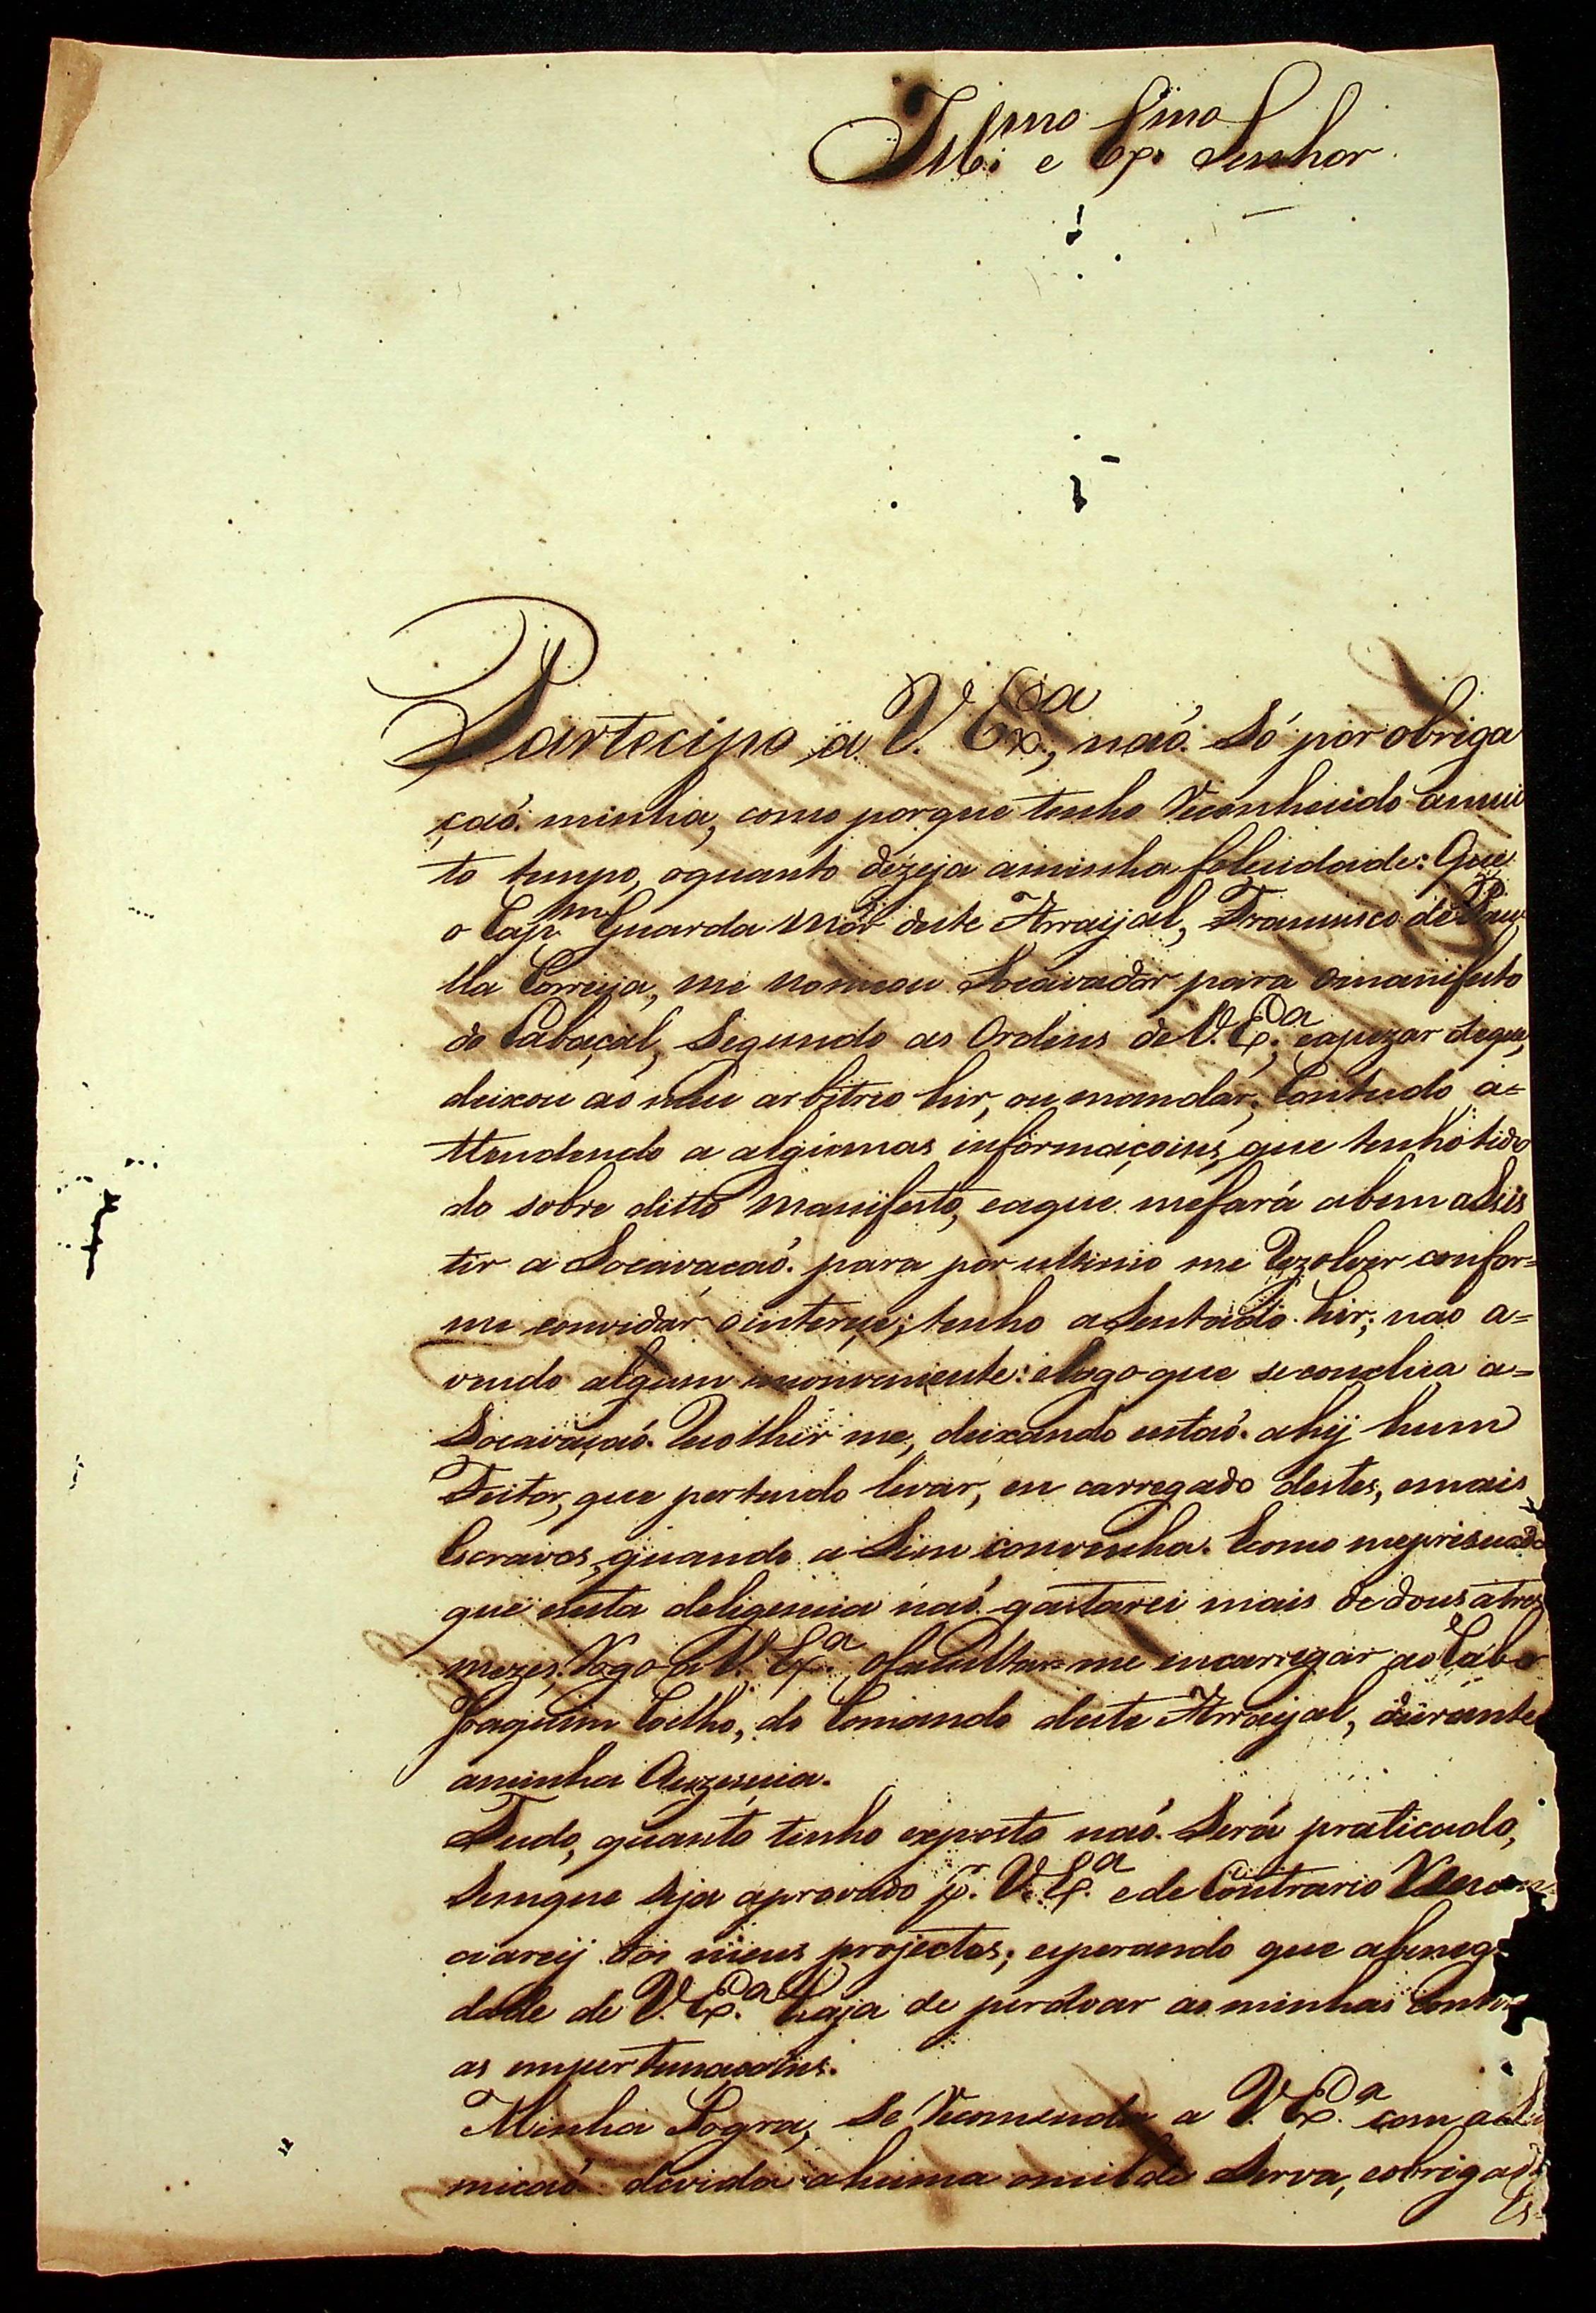 Ill.mo e Ex.mo Senhor
Partecipo a V. Ex.a, naó Só por obriga
çaó minha, como porque tenho Reconhecido amui
to tempo, oquanto dezeja aminha felecidade: Que
o Cap.m Guarda Mór deste Arraijal, Francisco de Pau
lla Correija, me nomeou Socavador para omanifesto
do Cabaçal, Segundo as Ordens de V. Ex.a; eapezar deque,
deixou ao meu arbitrio hir, ou mandar; Contudo a=
ttendendo a algumas informaçoins, que tenho tido
do sobre ditto Manifesto, eaque mefará abem asis
tir a Socavacaó para por ultimo me Rezolver confor=
me convidár ointerece; tenho aSentado hir; nao a=
vendo algum inconveniente: elogo que seconclua a=
Socavaçaó Recolhir me, deixando entaó ahij hum
Feitor, que pertendo levar, en carregado destes, emais
Escravos, quando aSim convenha. Ecomo mepersuado
que nesta deligencia naó gastarei mais de dous atres
mezes, Rogo a V. Ex.a, ofacultar=me encarregar ao Cabo
Joaquim Coelho, do Comando deste Arraijal, durante
aminha Auzencia.
Tudo, quanto tenho exposto naó Será praticado,
Semque Seja aprovado p.r V. Ex.a e de Contrario
ciareij dos meus projectos; esperando que
dade de V. Ex.a haja de perdoar as minhas
as empertunaçoins.
Minha Sogra, Se Recomenda a V. Ex.a com
micaó devida ahuma omilde Serva, eobrigad
Es=